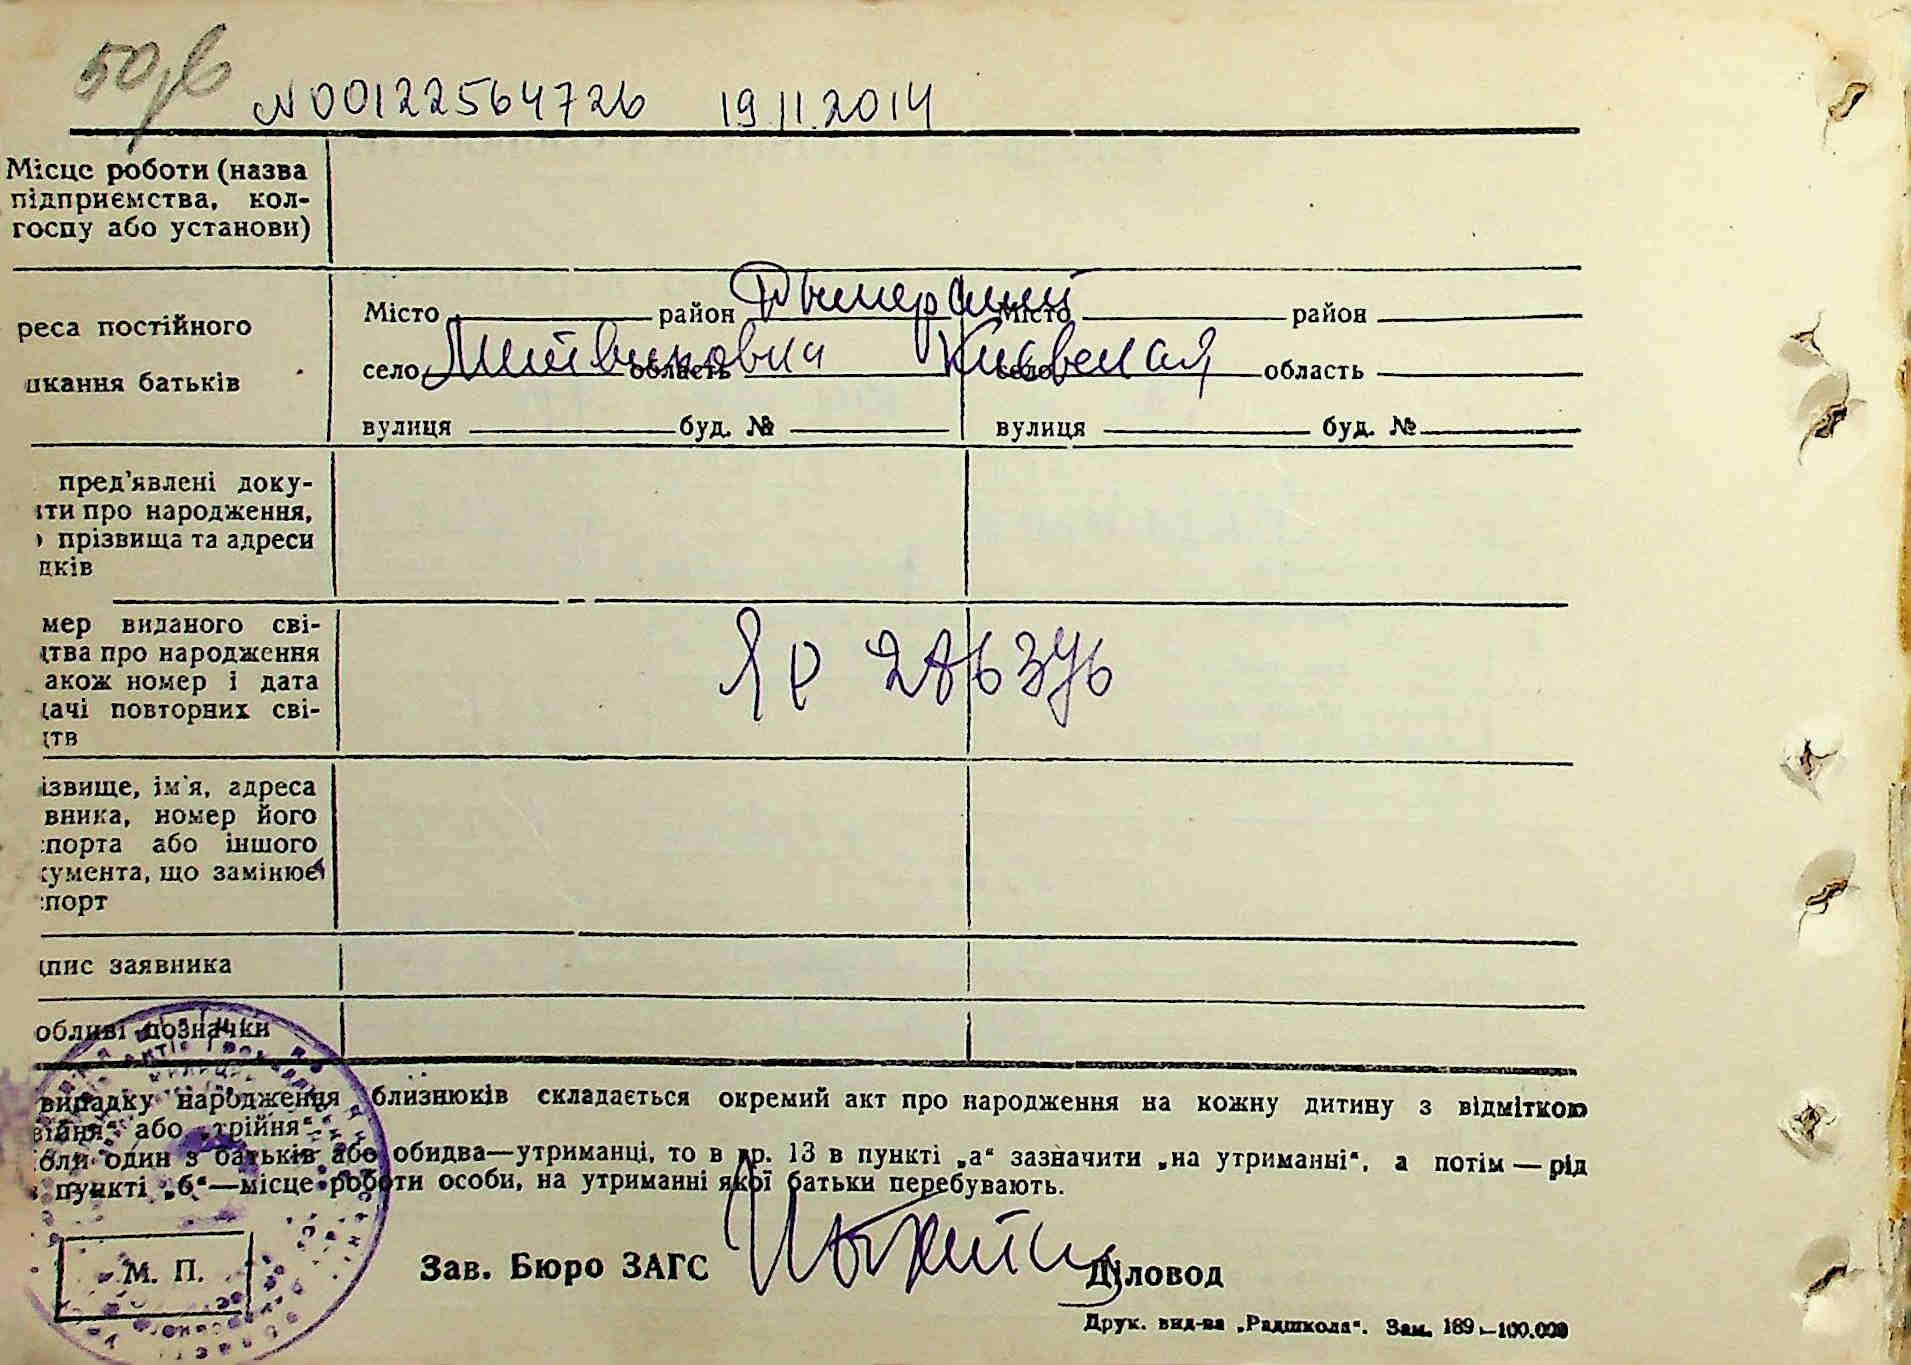 №00122564726 19.11.2014
Місце роботи (назва
підприємства, кол-
госпу або установи)
реса постійного
шкання батьків
Місто район Дымерский Місто район
село область Киевская село область
вулиця буд. № вулиця буд. №
пред'явлені доку-
нти про народження,
прізвища та адреси
дків
мер виданого сві-
цтва про народження
акож номер і дата
дачі повторних сві-
цтв
ЯР 286376
ізвище, ім'я, адреса
вника, номер його
спорта або іншого
кумента, що замінює
спорт
дпис заявника
обливі позначки
випадку народження близнюків складається окремий акт про народження на кожну дитину з відміткою
війня“ або „трійня“
оли один з батьків або обидва—утриманці, то в гр. 13 в пункті „а“ зазначити „на утриманні“, а потім — рід
пункті „б“—місце роботи особи, на утриманні якої батьки перебувають.
М. П.
Зав. Бюро ЗАГС
Діловод
Друк. вид-ва „Радшкола“. Зам. 189—100.000